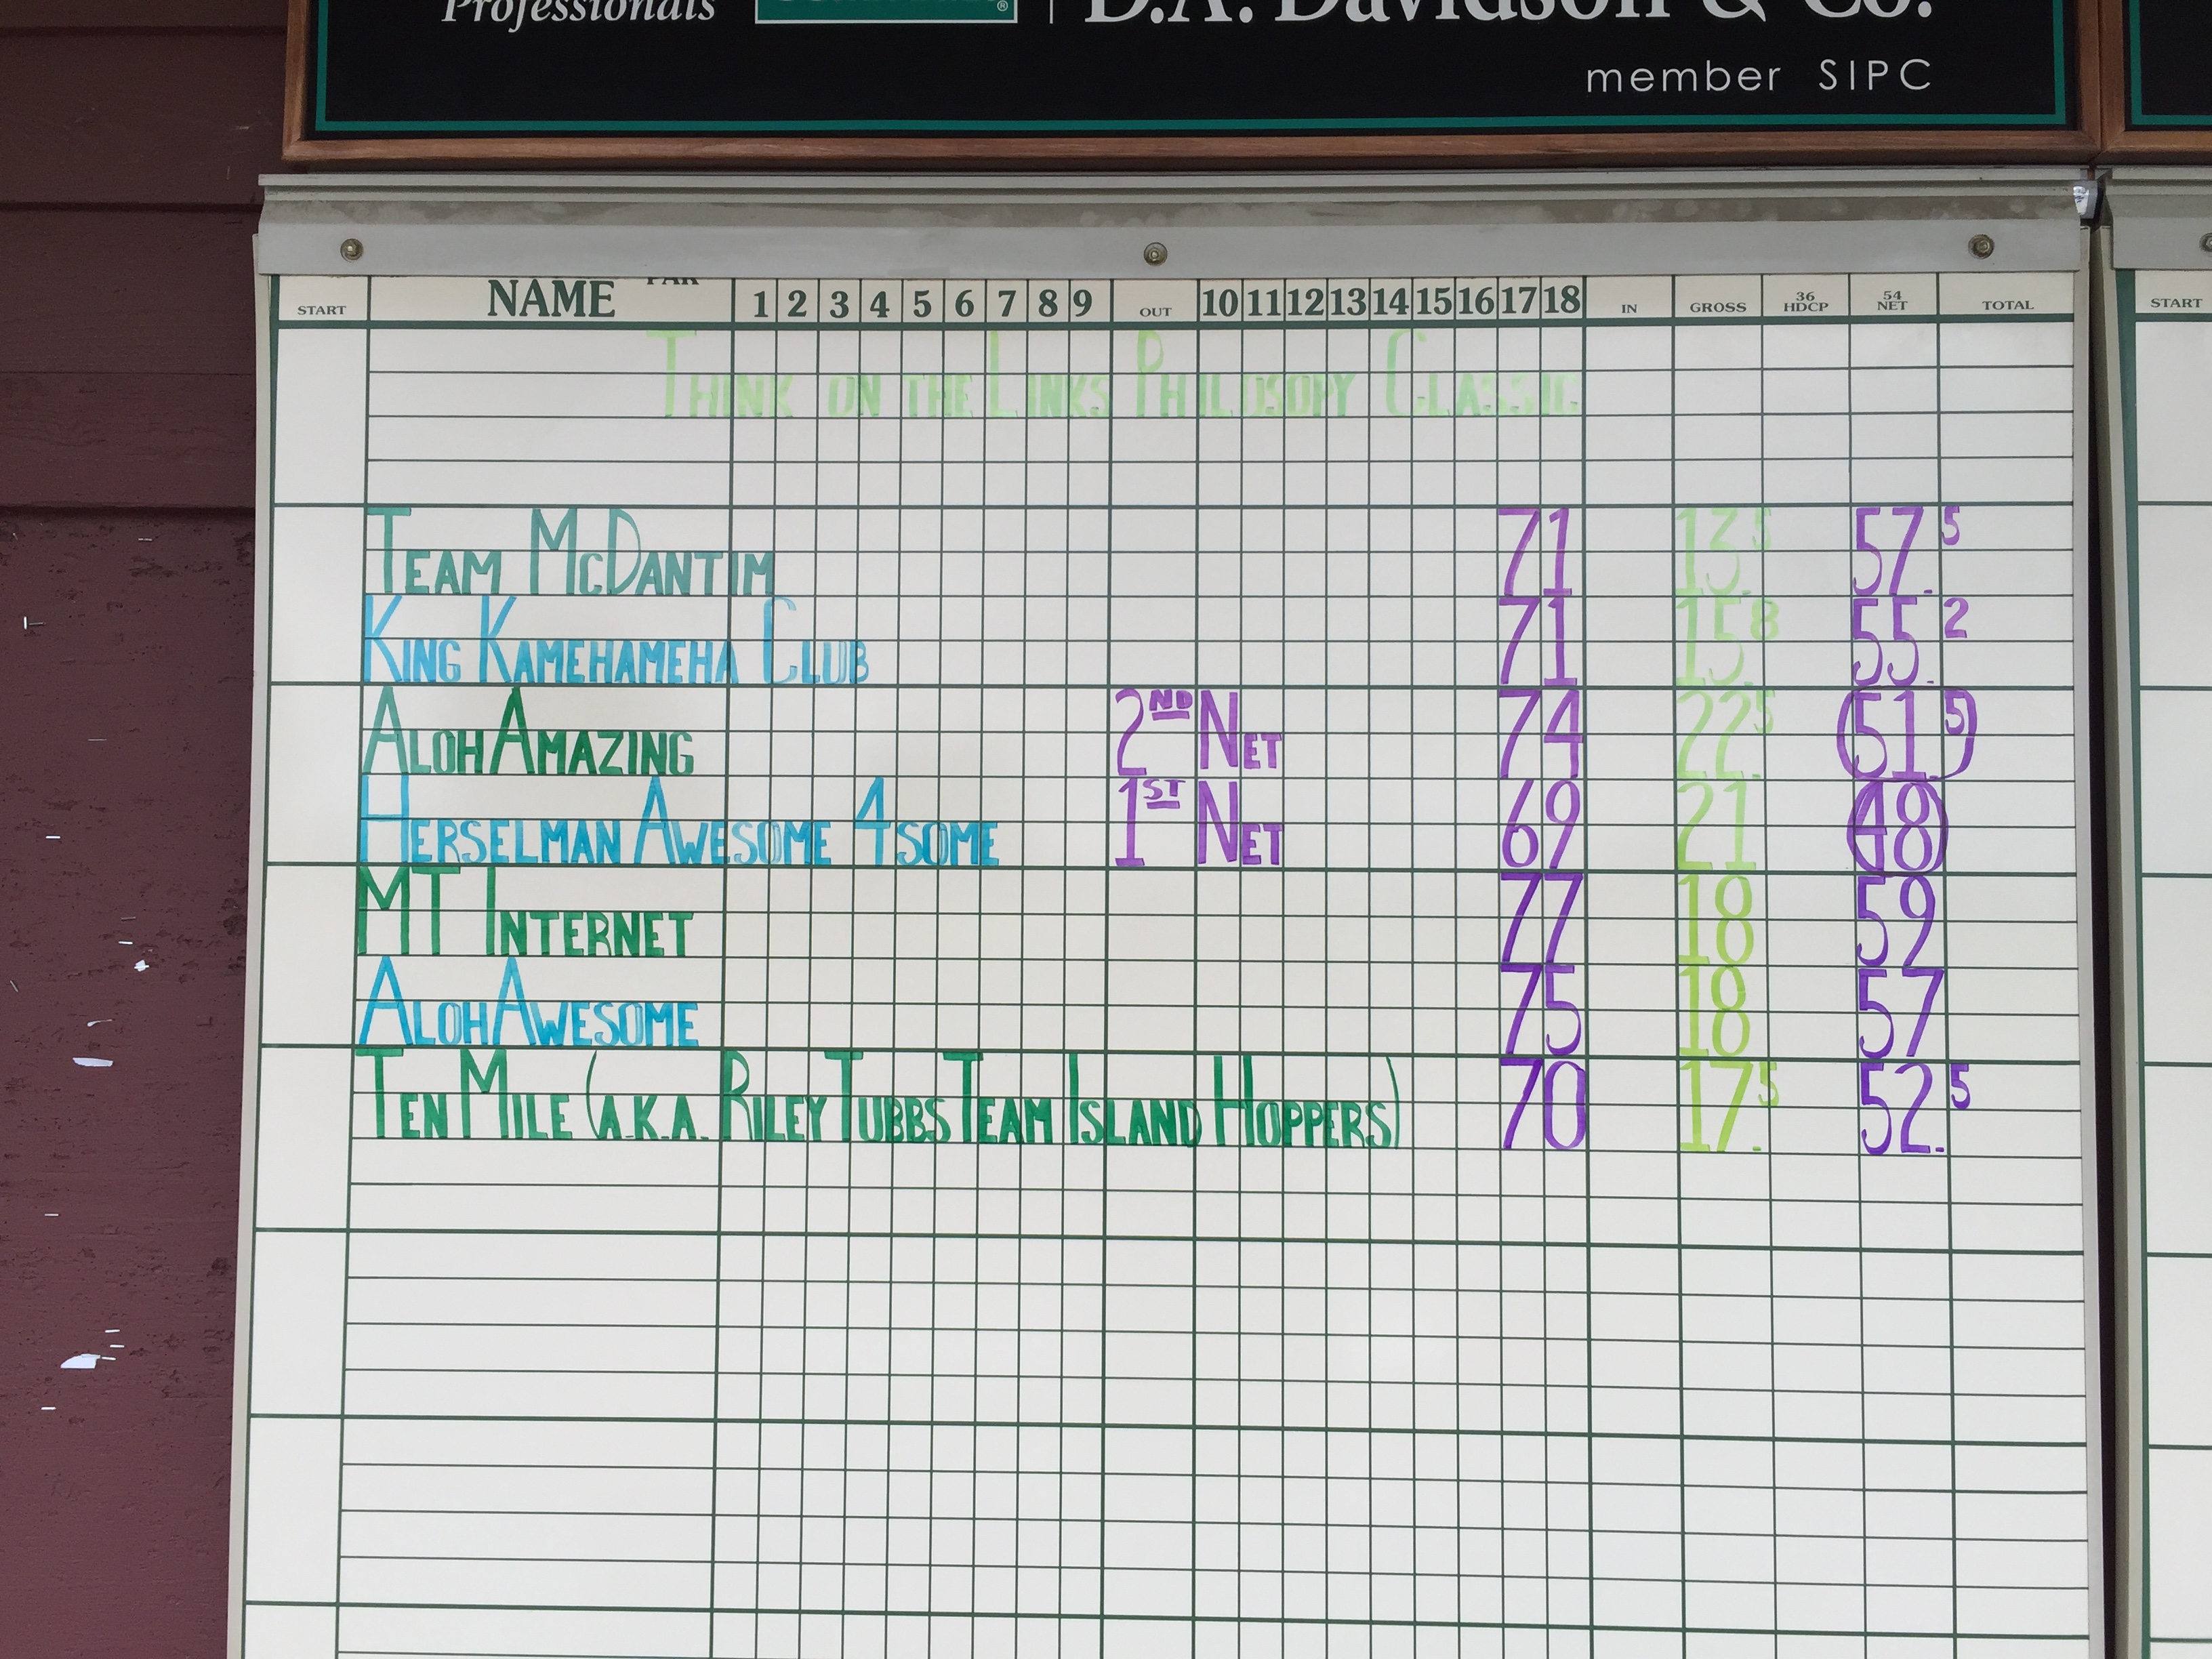 Professionals D.A. Davidson & Co.
member SIPC
START NAME PAR 1 2 3 4 5 6 7 8 9 OUT 10 11 12 13 14 15 16 17 18 IN GROSS 36 HDCP 54 NET TOTAL START
THINK ON THE LINKS PHILOSOPY CLASSIC
TEAM MCDANTIM 71 13.5 57.5
KING KAMEHAMEHA CLUB 71 15.8 55.2
ALOHAMAZING 2ND NET 74 22.5 51.5
HERSELMAN AWESOME 4SOME 1ST NET 69 21 48
MT INTERNET 77 18 59
ALOHAWESOME 75 18 57
TEN MILE (A.K.A. RILEY TUBBS TEAM ISLAND HOPPERS) 70 17.5 52.5